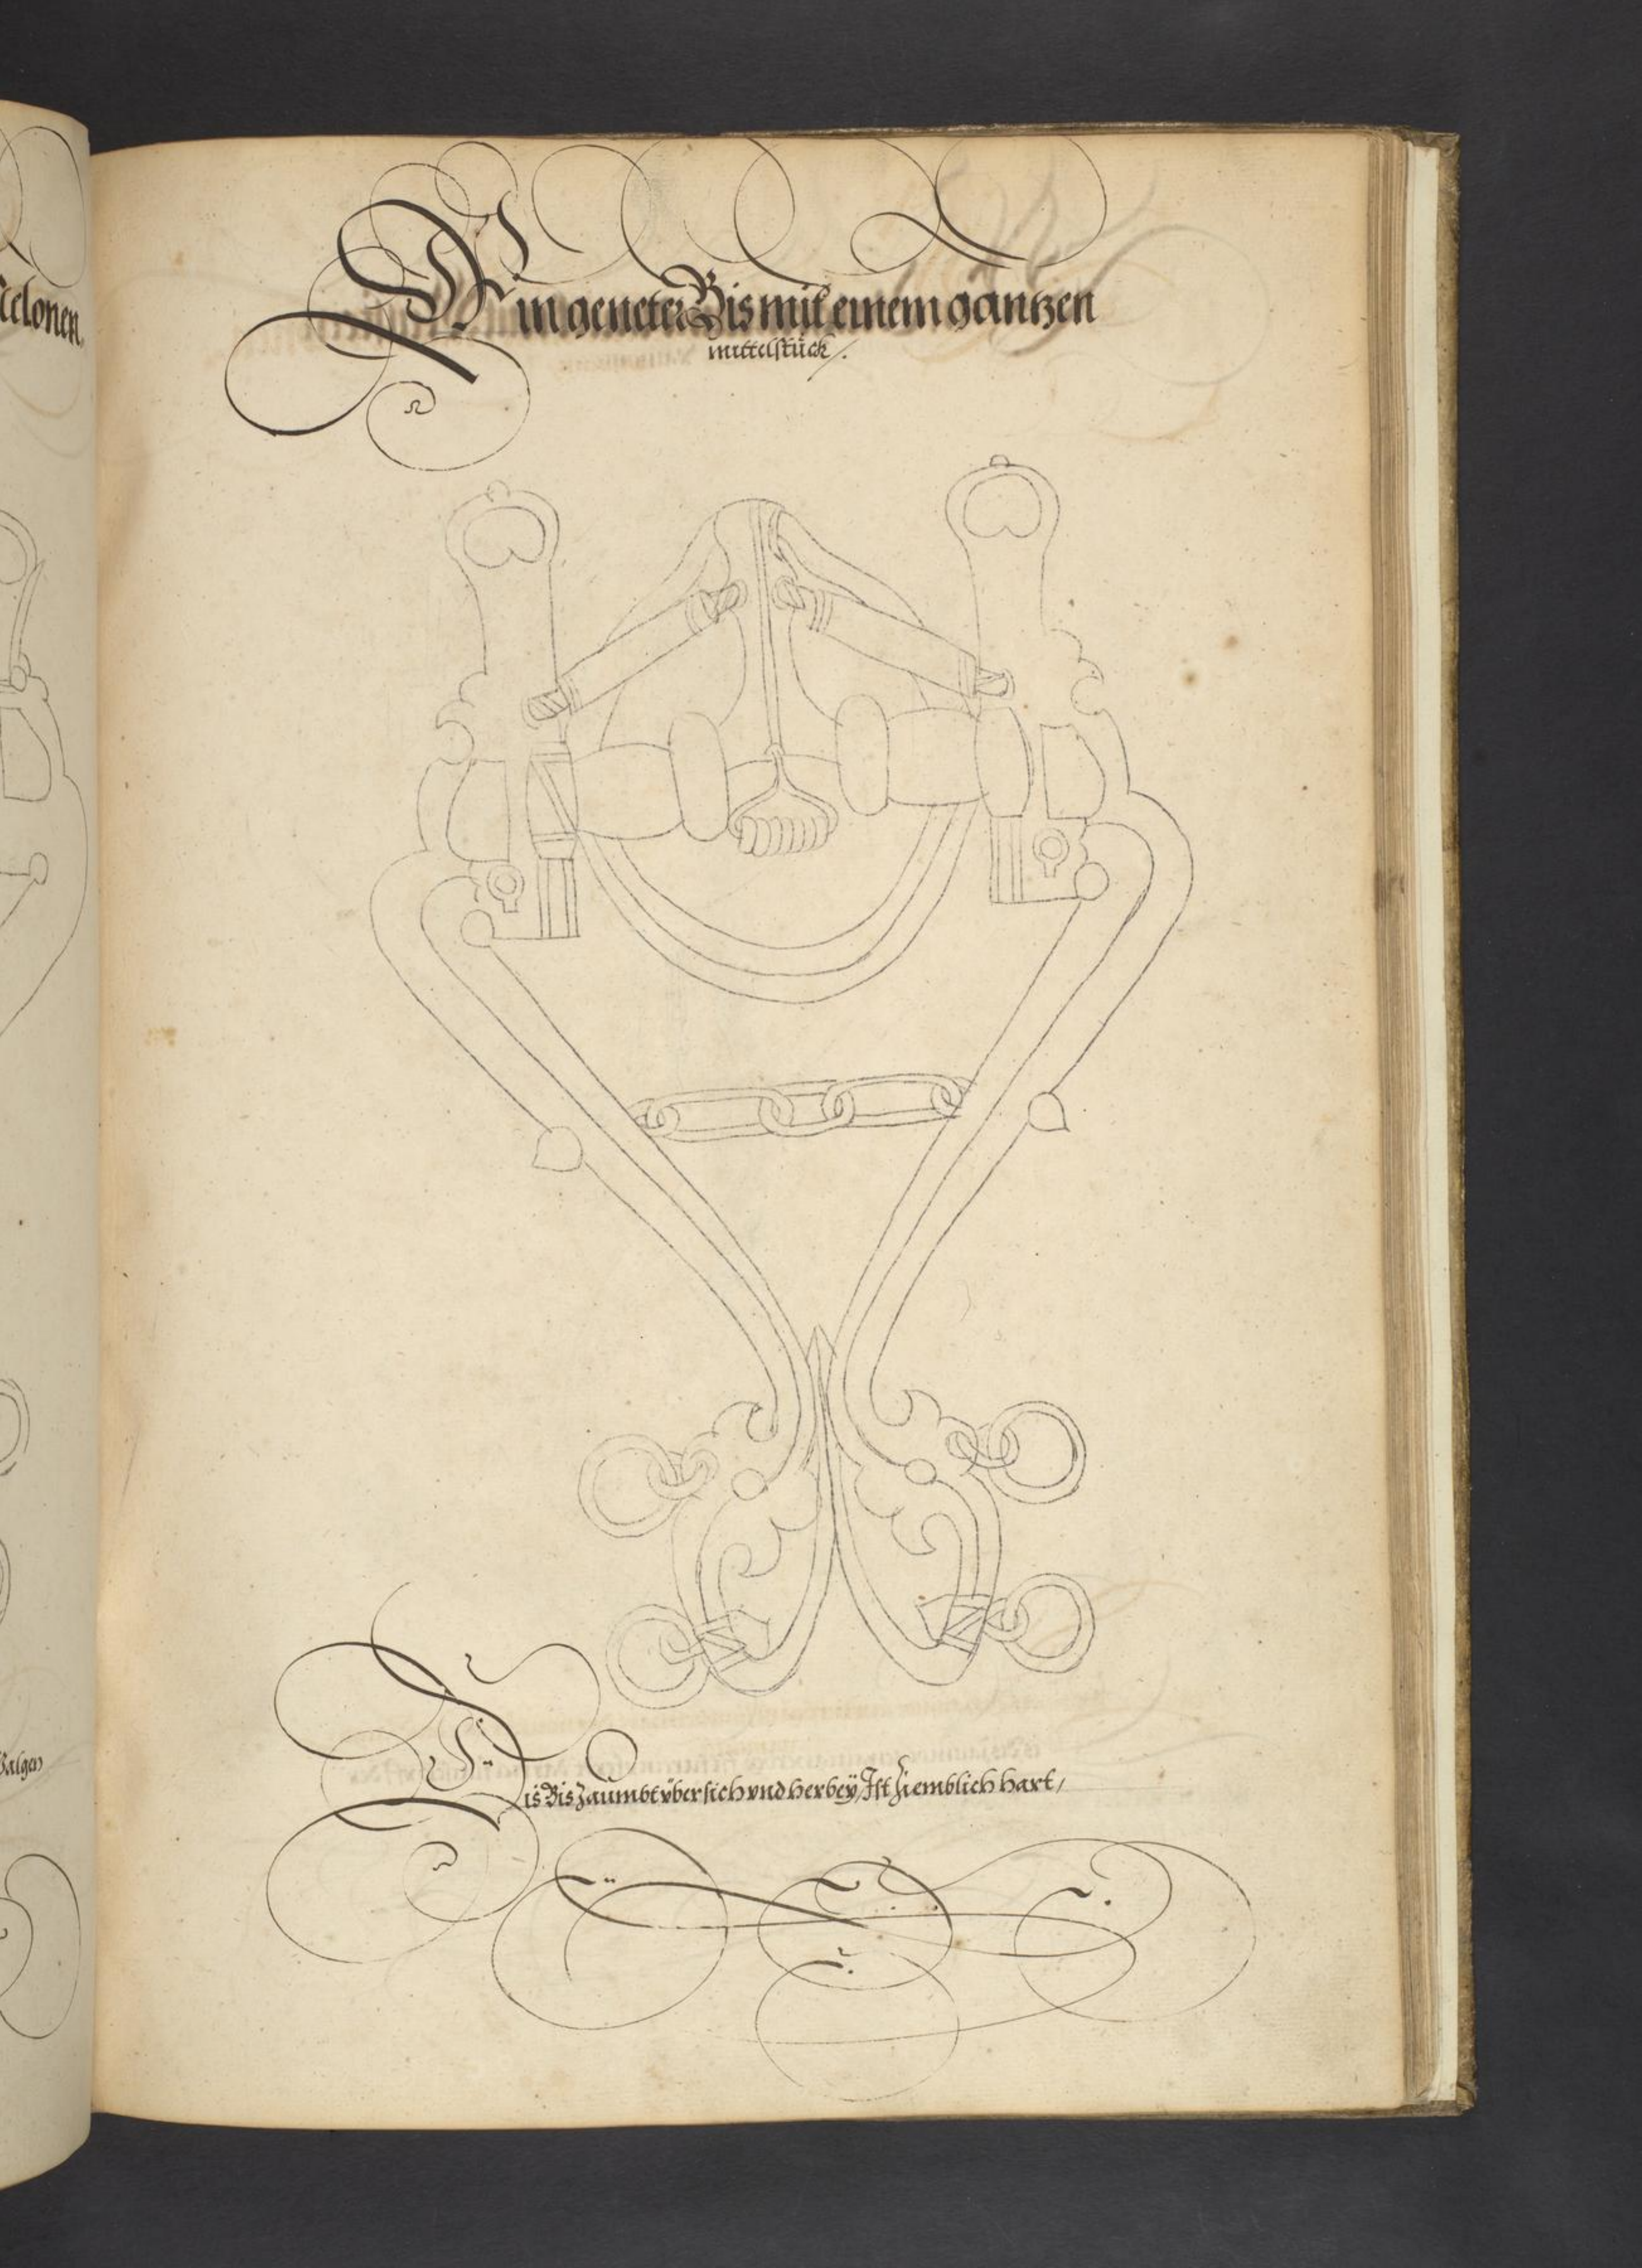 Ein geneter Bis mit einem gäntzen
mittelstück /.
Dis Bis Zaümbt vber sich vnd herbeÿ / Ist Ziemblich hart /
elonen.
Balgen